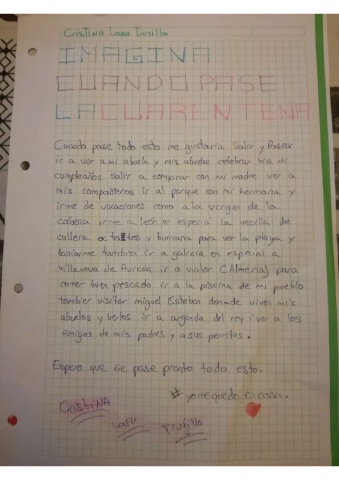 Cristina Lara Trujillo
IMAGINA
CUANDO PASE
LA CUARENTENA
Cuando pase todo esto me gustaría Salir y Pasear
ir a ver a mi abuela y mis abuelos celebrar mi
cumpleaños salir a comprar con mi madre ver a
mis compañeros ir al parque con mi hermana y
irme de vacaciones como a la virgen de la
cabeza irme a león en especial la vecilla de
cullera y humana para ver la playa y
bañarme tambien ir a galicia en especial a
villanova de Aurosa ir a viator (Almeria) para
comer buen pescado ir a la piscina de mi pueblo
tambier visitar miguel Esteban donde viven mis
abuelos y velos ir a arganda del rey i ver a los
amigas de mis padres y a sus perritos.
Espero que se pase pronto todo esto.
# yo me quedo en casa.
CRISTINA
Lara
Trujillo